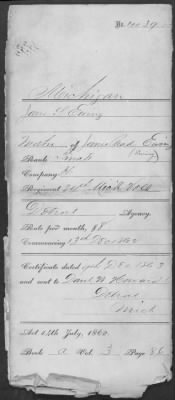 No. 20.29
Michigan
Jane S. Ewing
Mother of James Reed Ewing
(Ewing)
Rank: Private
Company H
Regiment 24th Mich Vols
Detroit Agency.
Rate per month, $8
Commencing 13th Dec 1862
Certificate dated Dec 1863
and sent to
Detroit
Mich
Act 14th July, 1862.
Book A Vol. 3 Page 86